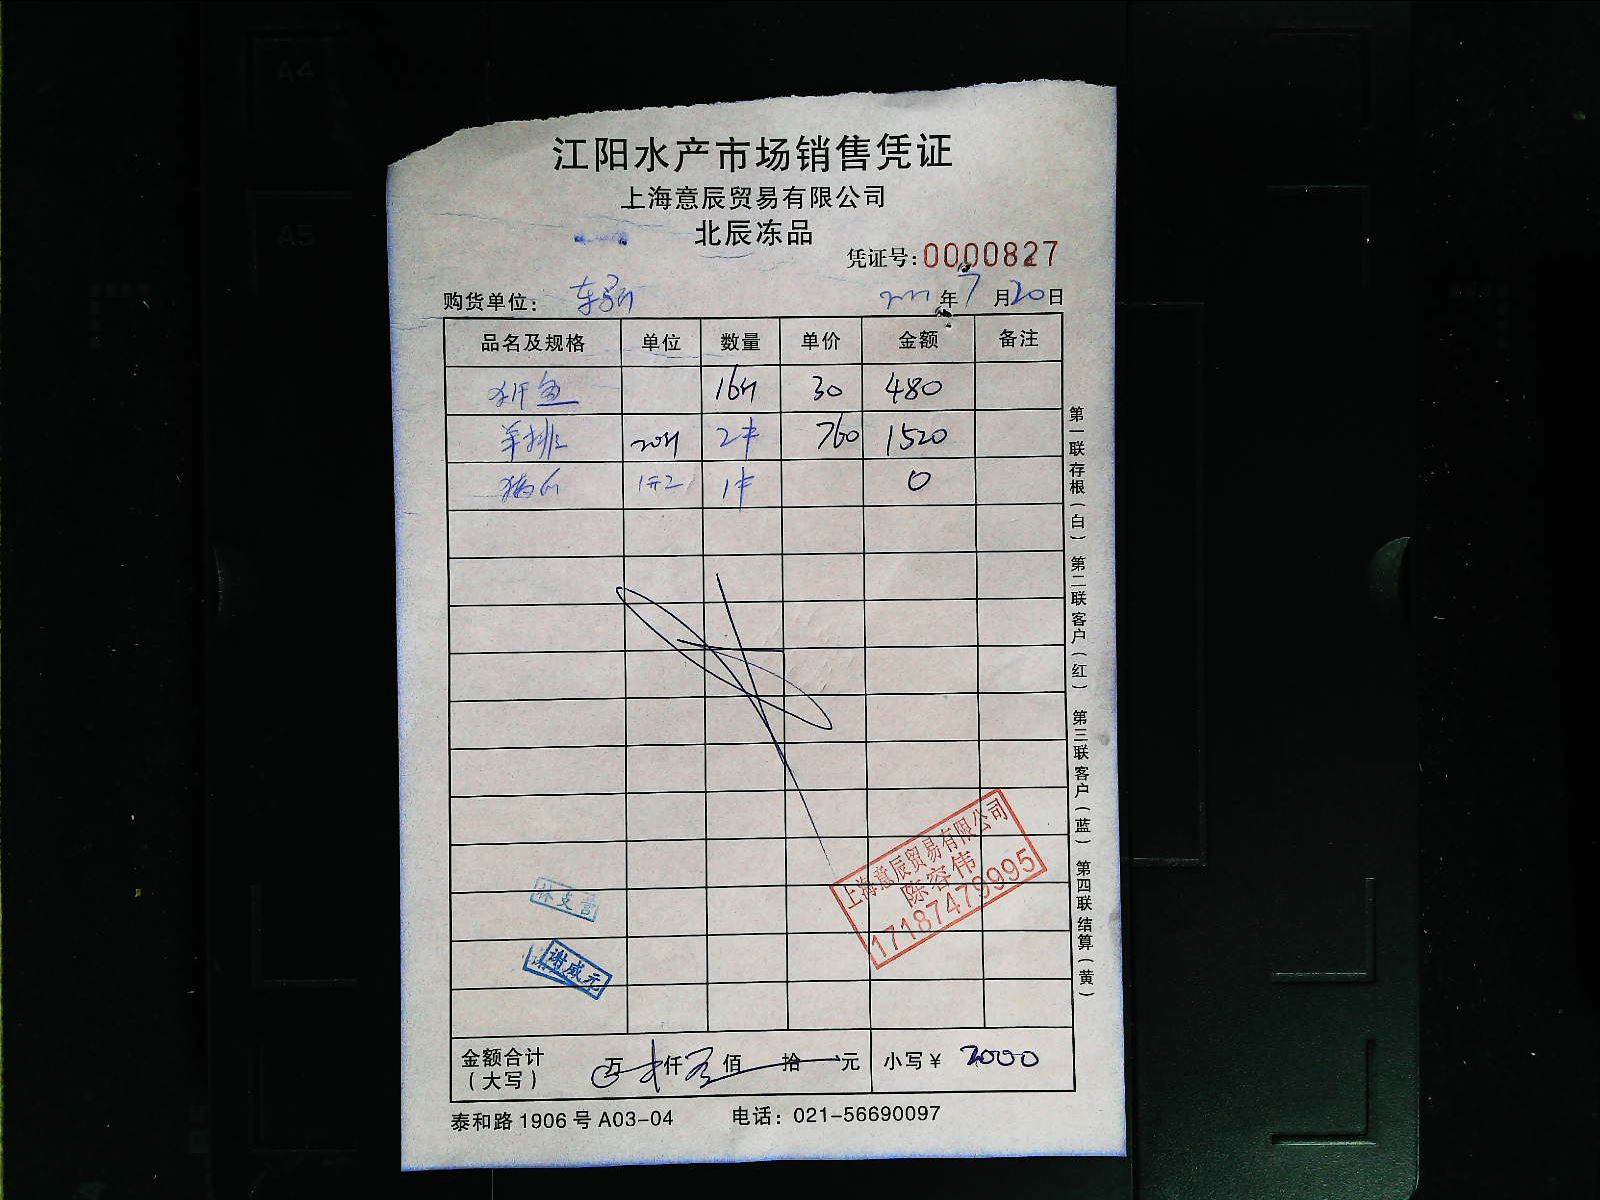 A4
A5
江阳水产市场销售凭证
上海意辰贸易有限公司
北辰冻品
凭证号:0000827
购货单位:
年7月20日
品名及规格 单位 数量 单价 金额 备注
鱼 16斤 30 480
羊排 20斤 2件 760 1520
1件 0
第一联存根(白) 第二联客户(红) 第三联客户(蓝) 第四联结算(黄)
上海意辰贸易有限公司
陈容伟
17187479995
林支营
谢咸元
金额合计(大写) 万 仟 佰 拾 元 小写¥ 2000
泰和路1906号A03-04 电话:021-56690097